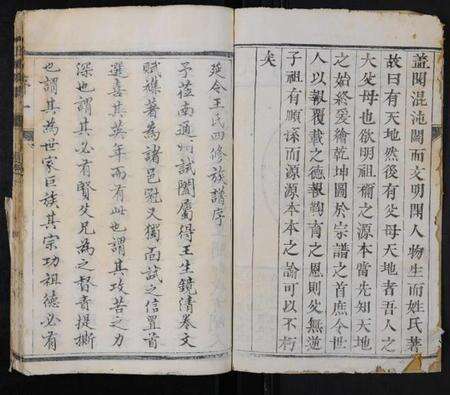 蓋聞混沌闢而文明開人物生而姓氏著
故曰有天地然後有父母天地者吾人之
大父母也欲明祖禰之源本當先知天地
之始終爰繪乾坤圖於宗譜之首庶令世
人以報覆載之德報鞠育之恩則父無道
子祖有順孫而源源本本之論可以不朽
矣
延令王氏四修族譜序
予莅南通州試闈屬得王生鏡清卷文
賦襍著為諸邑冠又獨面試之信置首
選喜其英年而有此也謂其攻苦之力
深也謂其必有賢父兄為之督責提撕
也謂其為世家巨族其宗功祖德必有